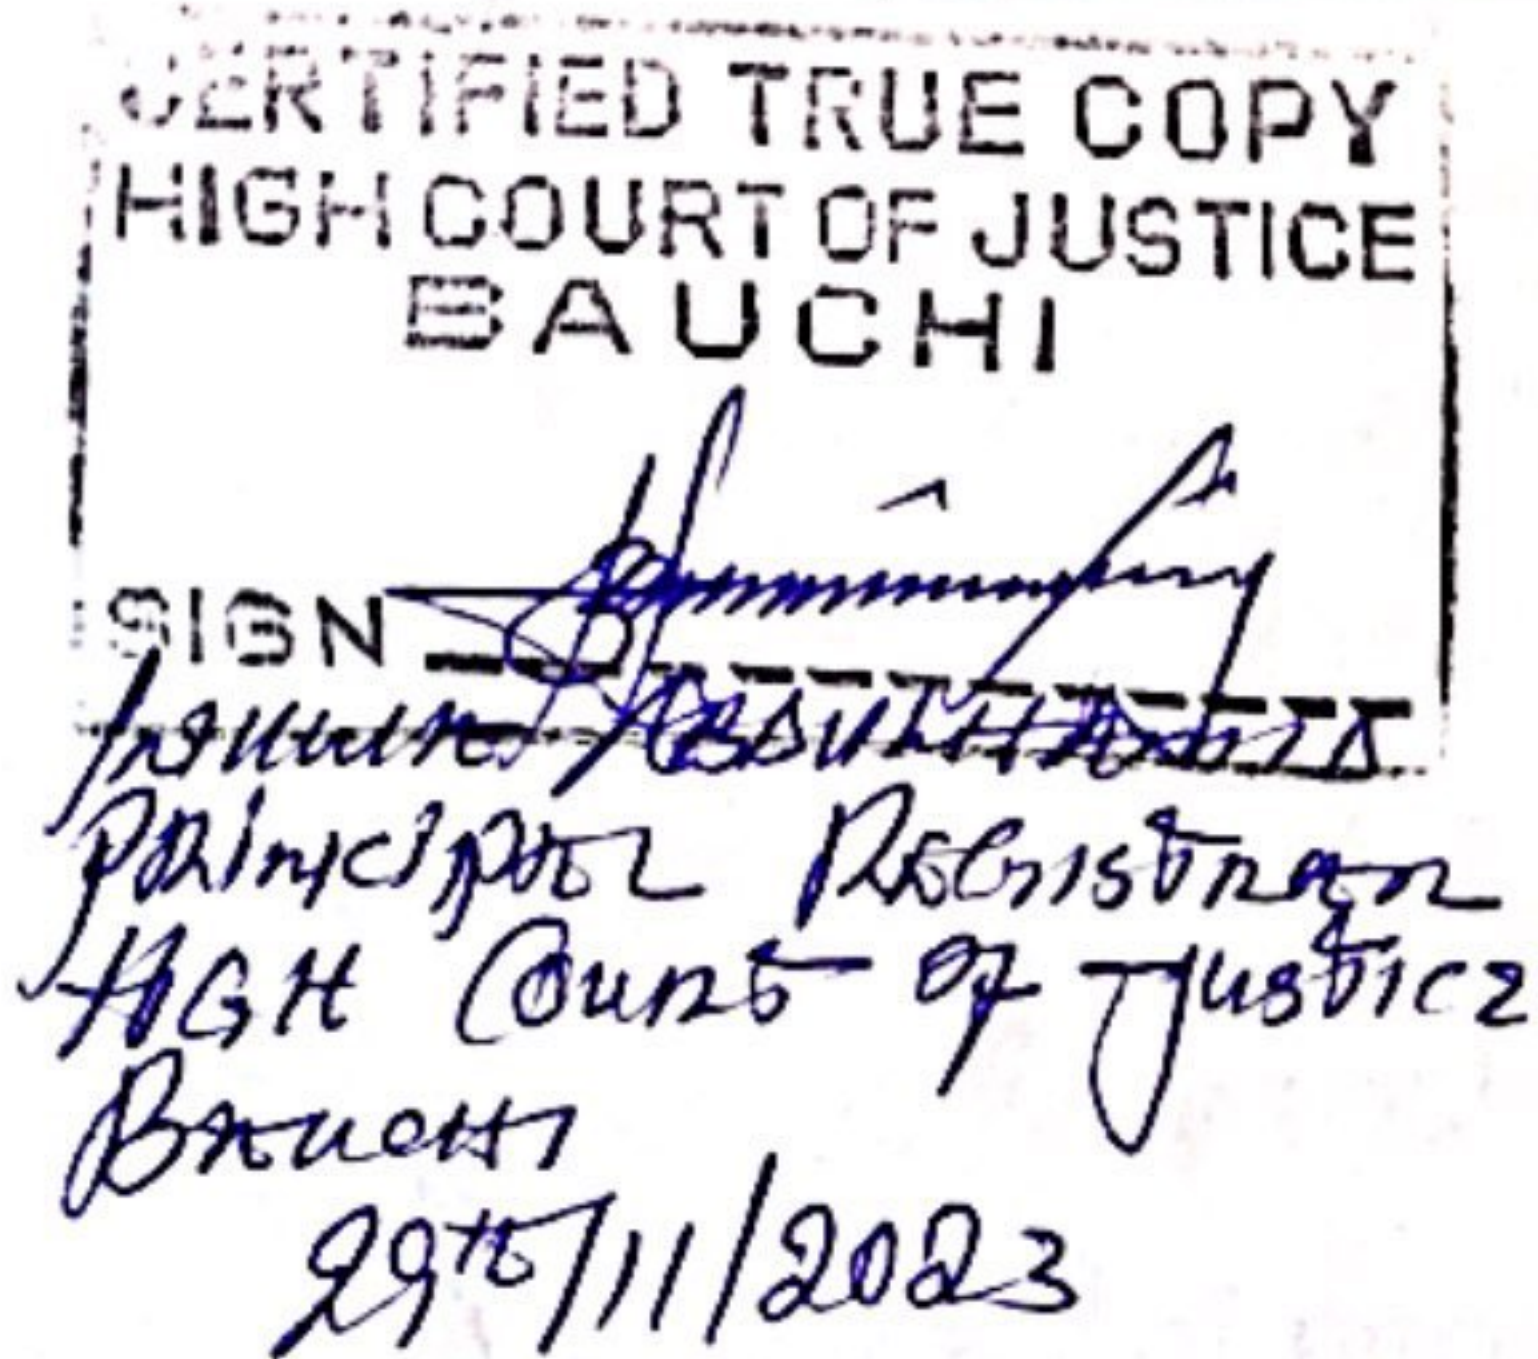 CERTIFIED TRUE COPY
HIGH COURT OF JUSTICE
BAUCHI
SIGN
Principal Registrar
High Court of Justice
Bauchi
29th/11/2023